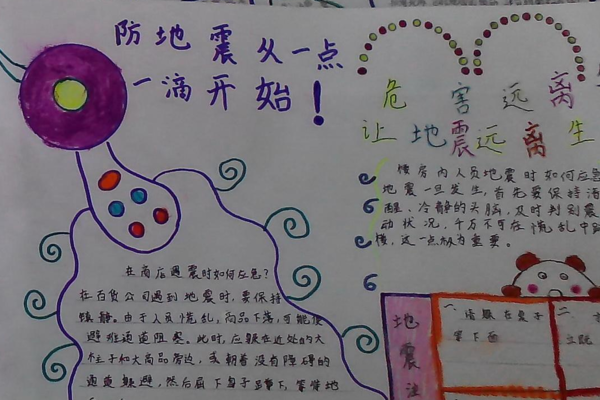 防地震从一点
一滴开始！
危害远离
让地震远离生
楼房内人员地震时如何应急
地震一旦发生，首先要保持清
醒、冷静的头脑，及时判别震
动状况，千万不可在慌乱中跳
楼，这一点极为重要。
在商店遇震时如何应急？
在百货公司遇到地震时，要保持
镇静。由于人员慌乱，商品下落，可能使
避难通道阻塞。此时，应躲在近处的大
柱子和大商品旁边，或朝着没有障碍的
通道躲避，然后屈下身子蹲下，等待地
地
震
注
一、
躲在桌子
等下面
二